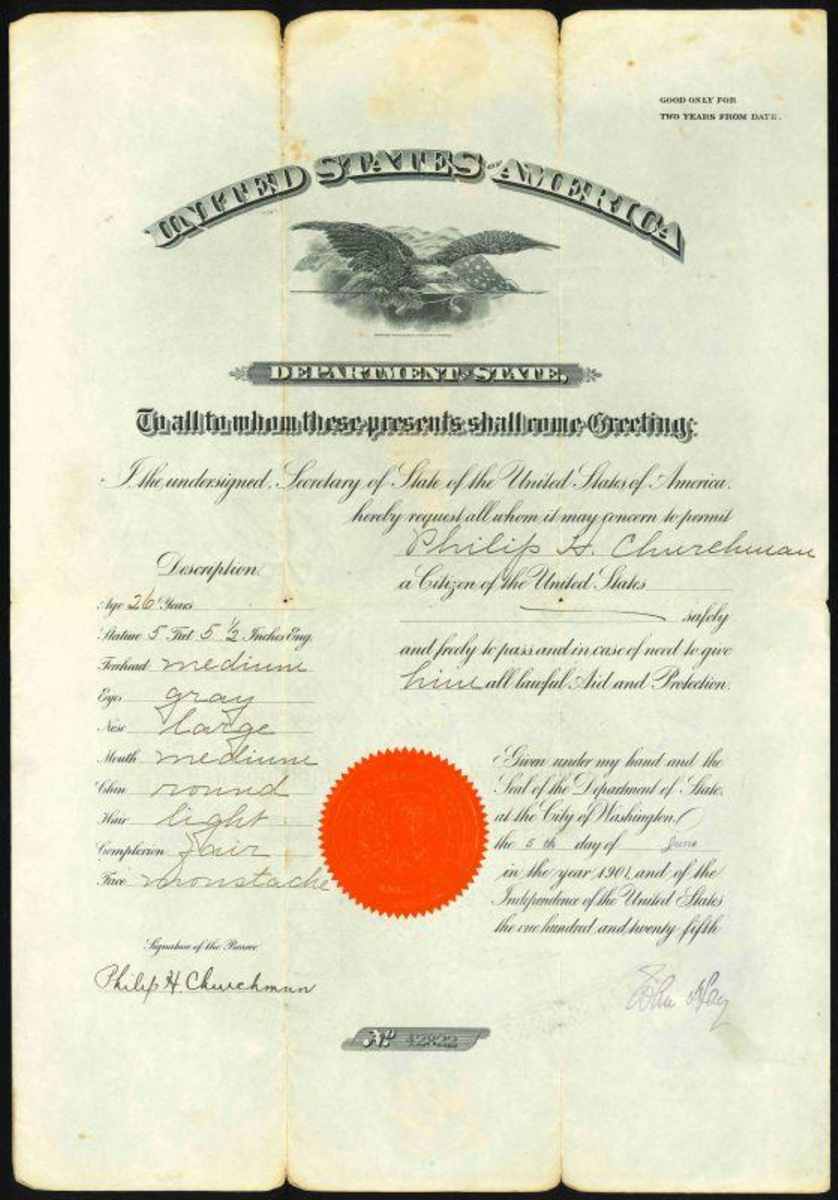 GOOD ONLY FOR
TWO YEARS FROM DATE.
UNITED STATES OF AMERICA
DEPARTMENT OF STATE,
To all to whom these presents shall come Greeting:
I the undersigned, Secretary of State of the United States of America,
hereby request all whom it may concern to permit
Philip H. Churchman
a Citizen of the United States
safely
and freely to pass and in case of need to give
him all lawful Aid and Protection.
Description.
Age 26 Years
Stature 5 Feet 5 1/2 Inches Eng.
Forehead medium
Eyes gray
Nose large
Mouth medium
Chin round
Hair light
Complexion fair
Face moustache
Signature of the Bearer
Philip H. Churchman
Given under my hand and the
Seal of the Department of State,
at the City of Washington,
the 5 th day of June
in the year 1901, and of the
Independence of the United States
the one hundred and twenty fifth
John Hay
No. 42822